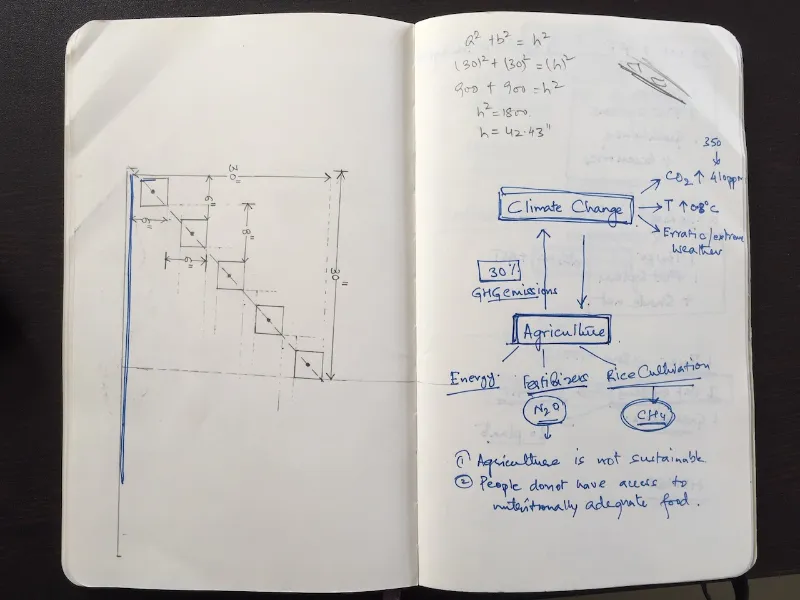 30"
6"
6"
8"
6"
30"
a² + b² = h²
(30)² + (30)² = (h)²
900 + 900 = h²
h² = 1800
h = 42.43"
350
CO₂ ↑ 410ppm
Climate Change
T ↑ 0.8°C
Erratic/extreme
weather
30%
GHG emissions
Agriculture
Energy Fertilizers Rice Cultivation
N₂O CH₄
① Agriculture is not sustainable
② People donot have access to
nutritionally adequate food.